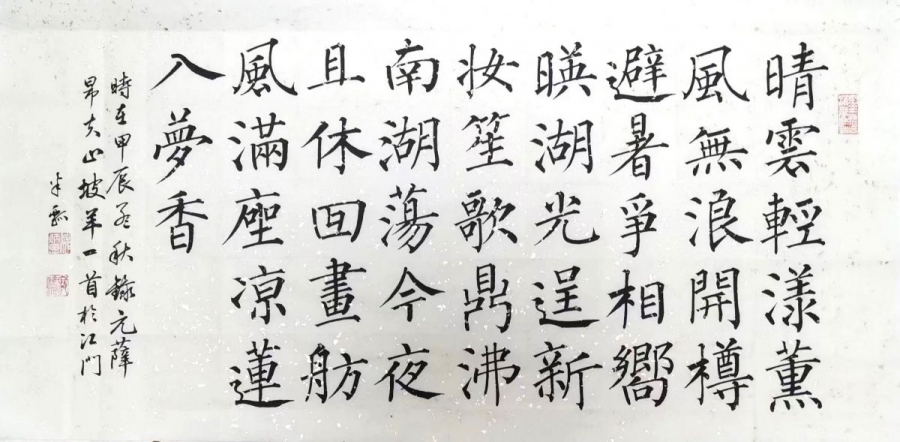 晴雲輕漾薰
風無浪開樽
避暑爭相嚮
暎湖光逞新
妆笙歌鼎沸
南湖蕩今夜
且休回畫舫
風滿座凉蓮
入夢香
時在甲辰孟秋錄元薩
昂夫山坡羊一首於江門
半瓢